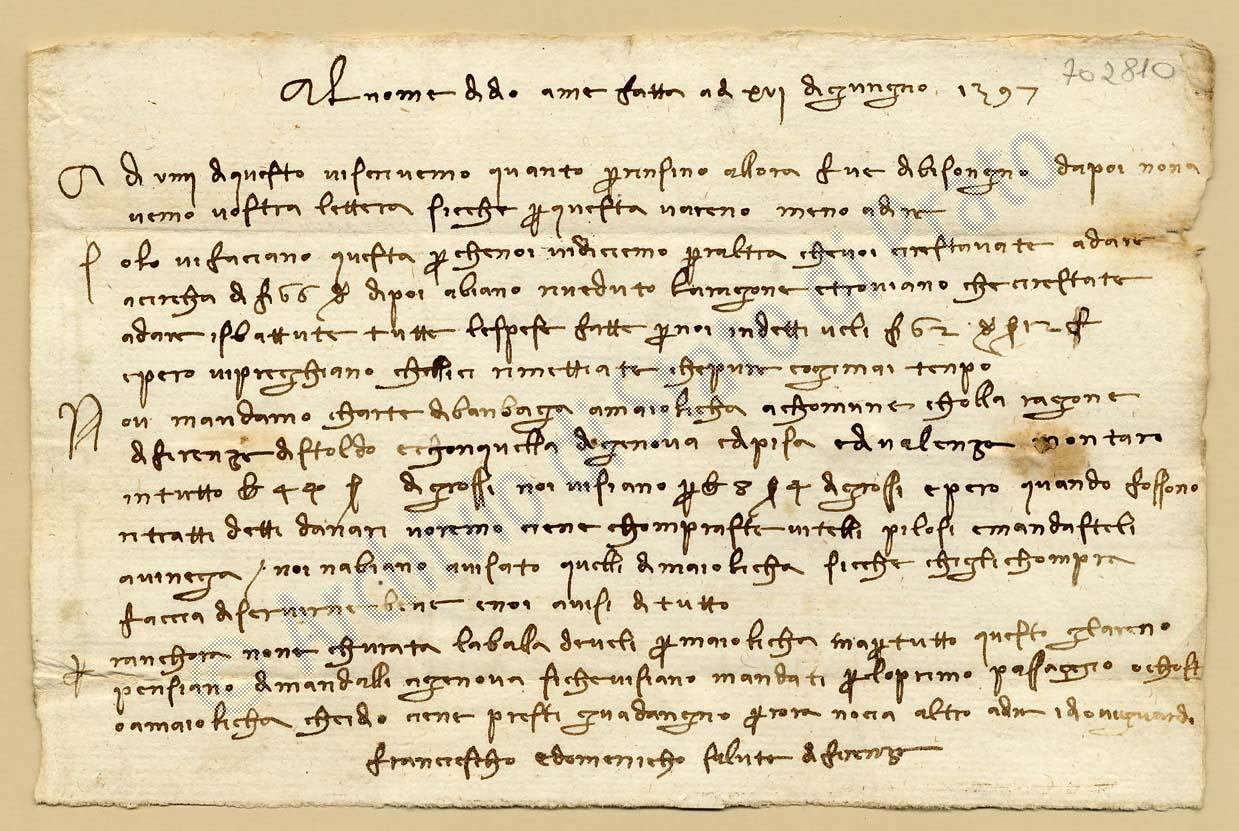 702810
Al nome di dio ame fatta adi xvi di gungno 1397
A di viiii di questo vi scrivemo quanto per insino allora fue di bisongno dapoi non a
vemo vostra lettera sicche per questa vareno meno a dire
Solo vi faciano questa perche noi vi dicemo per altra che voi ci restavate a dare
acircha di f 66 e dipoi abiano riveduto la ragone e troviano che ci restate
a dare isbattute tutte le spese fatte per noi in detti veli f 62 s 12
e pero vi preghiano che lli ci rimettiate che pure e ogimai tenpo
Noi mandamo charte di banbaga a maiolicha a chomune cholla ragone
di firenze di stoldo e chon quella di genova e di pisa e di valenza montaro
in tutto di grossi noi vi siano per 8 s 4 di grossi e pero quando fossono
ritratti detti danari voremo ciene chonpraste vitelli pilosi e mandasteli
a vinega / noi n abiano avisato quelli di maiolicha sicche chi gli chompra
faccia di servirne bene e noi avisi di tutto
Per anchora none churata la balla de veli per maiolicha ma per tutto questo gl areno
pensiano di mandalli a genova siche vi siano mandati per lo primo passaggio
o a maiolicha che idio ciene presti guadangno per ora nocia altro a dire idio vi guardi
franciescho e domenicho salute di firenze
© Archivio di Stato di Prato